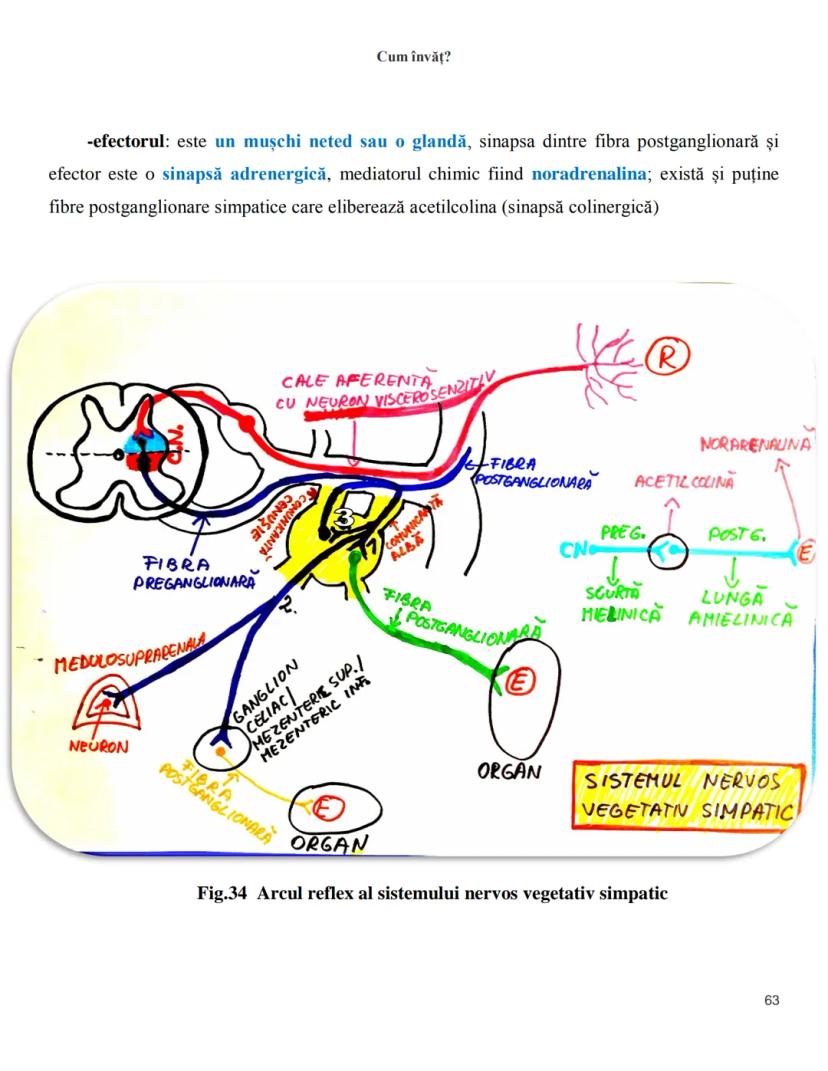 Cum învăț?
-efectorul: este un mușchi neted sau o glandă, sinapsa dintre fibra postganglionară și
efector este o sinapsă adrenergică, mediatorul chimic fiind noradrenalina; există și puține
fibre postganglionare simpatice care eliberează acetilcolina (sinapsă colinergică)
CALE AFERENTĂ
CU NEURON VISCEROSENZITIV
R
C.N.
FIBRA
POSTGANGLIONARĂ
NORARENALINĂ
ACETILCOLINĂ
COMUNICANTĂ
CENUȘIE
3
1
COMUNICANTĂ
ALBĂ
CN
PREG.
POSTG.
E
SCURTĂ
MIELINICĂ
LUNGĂ
AMIELINICĂ
FIBRA
PREGANGLIONARĂ
2.
FIBRA
POSTGANGLIONARĂ
MEDULOSUPRARENALA
NEURON
GANGLION
CELIAC/
MEZENTERIC SUP./
MEZENTERIC INF.
E
ORGAN
FIBRA
POSTGANGLIONARĂ
E
ORGAN
SISTEMUL NERVOS
VEGETATIV SIMPATIC
Fig.34 Arcul reflex al sistemului nervos vegetativ simpatic
63